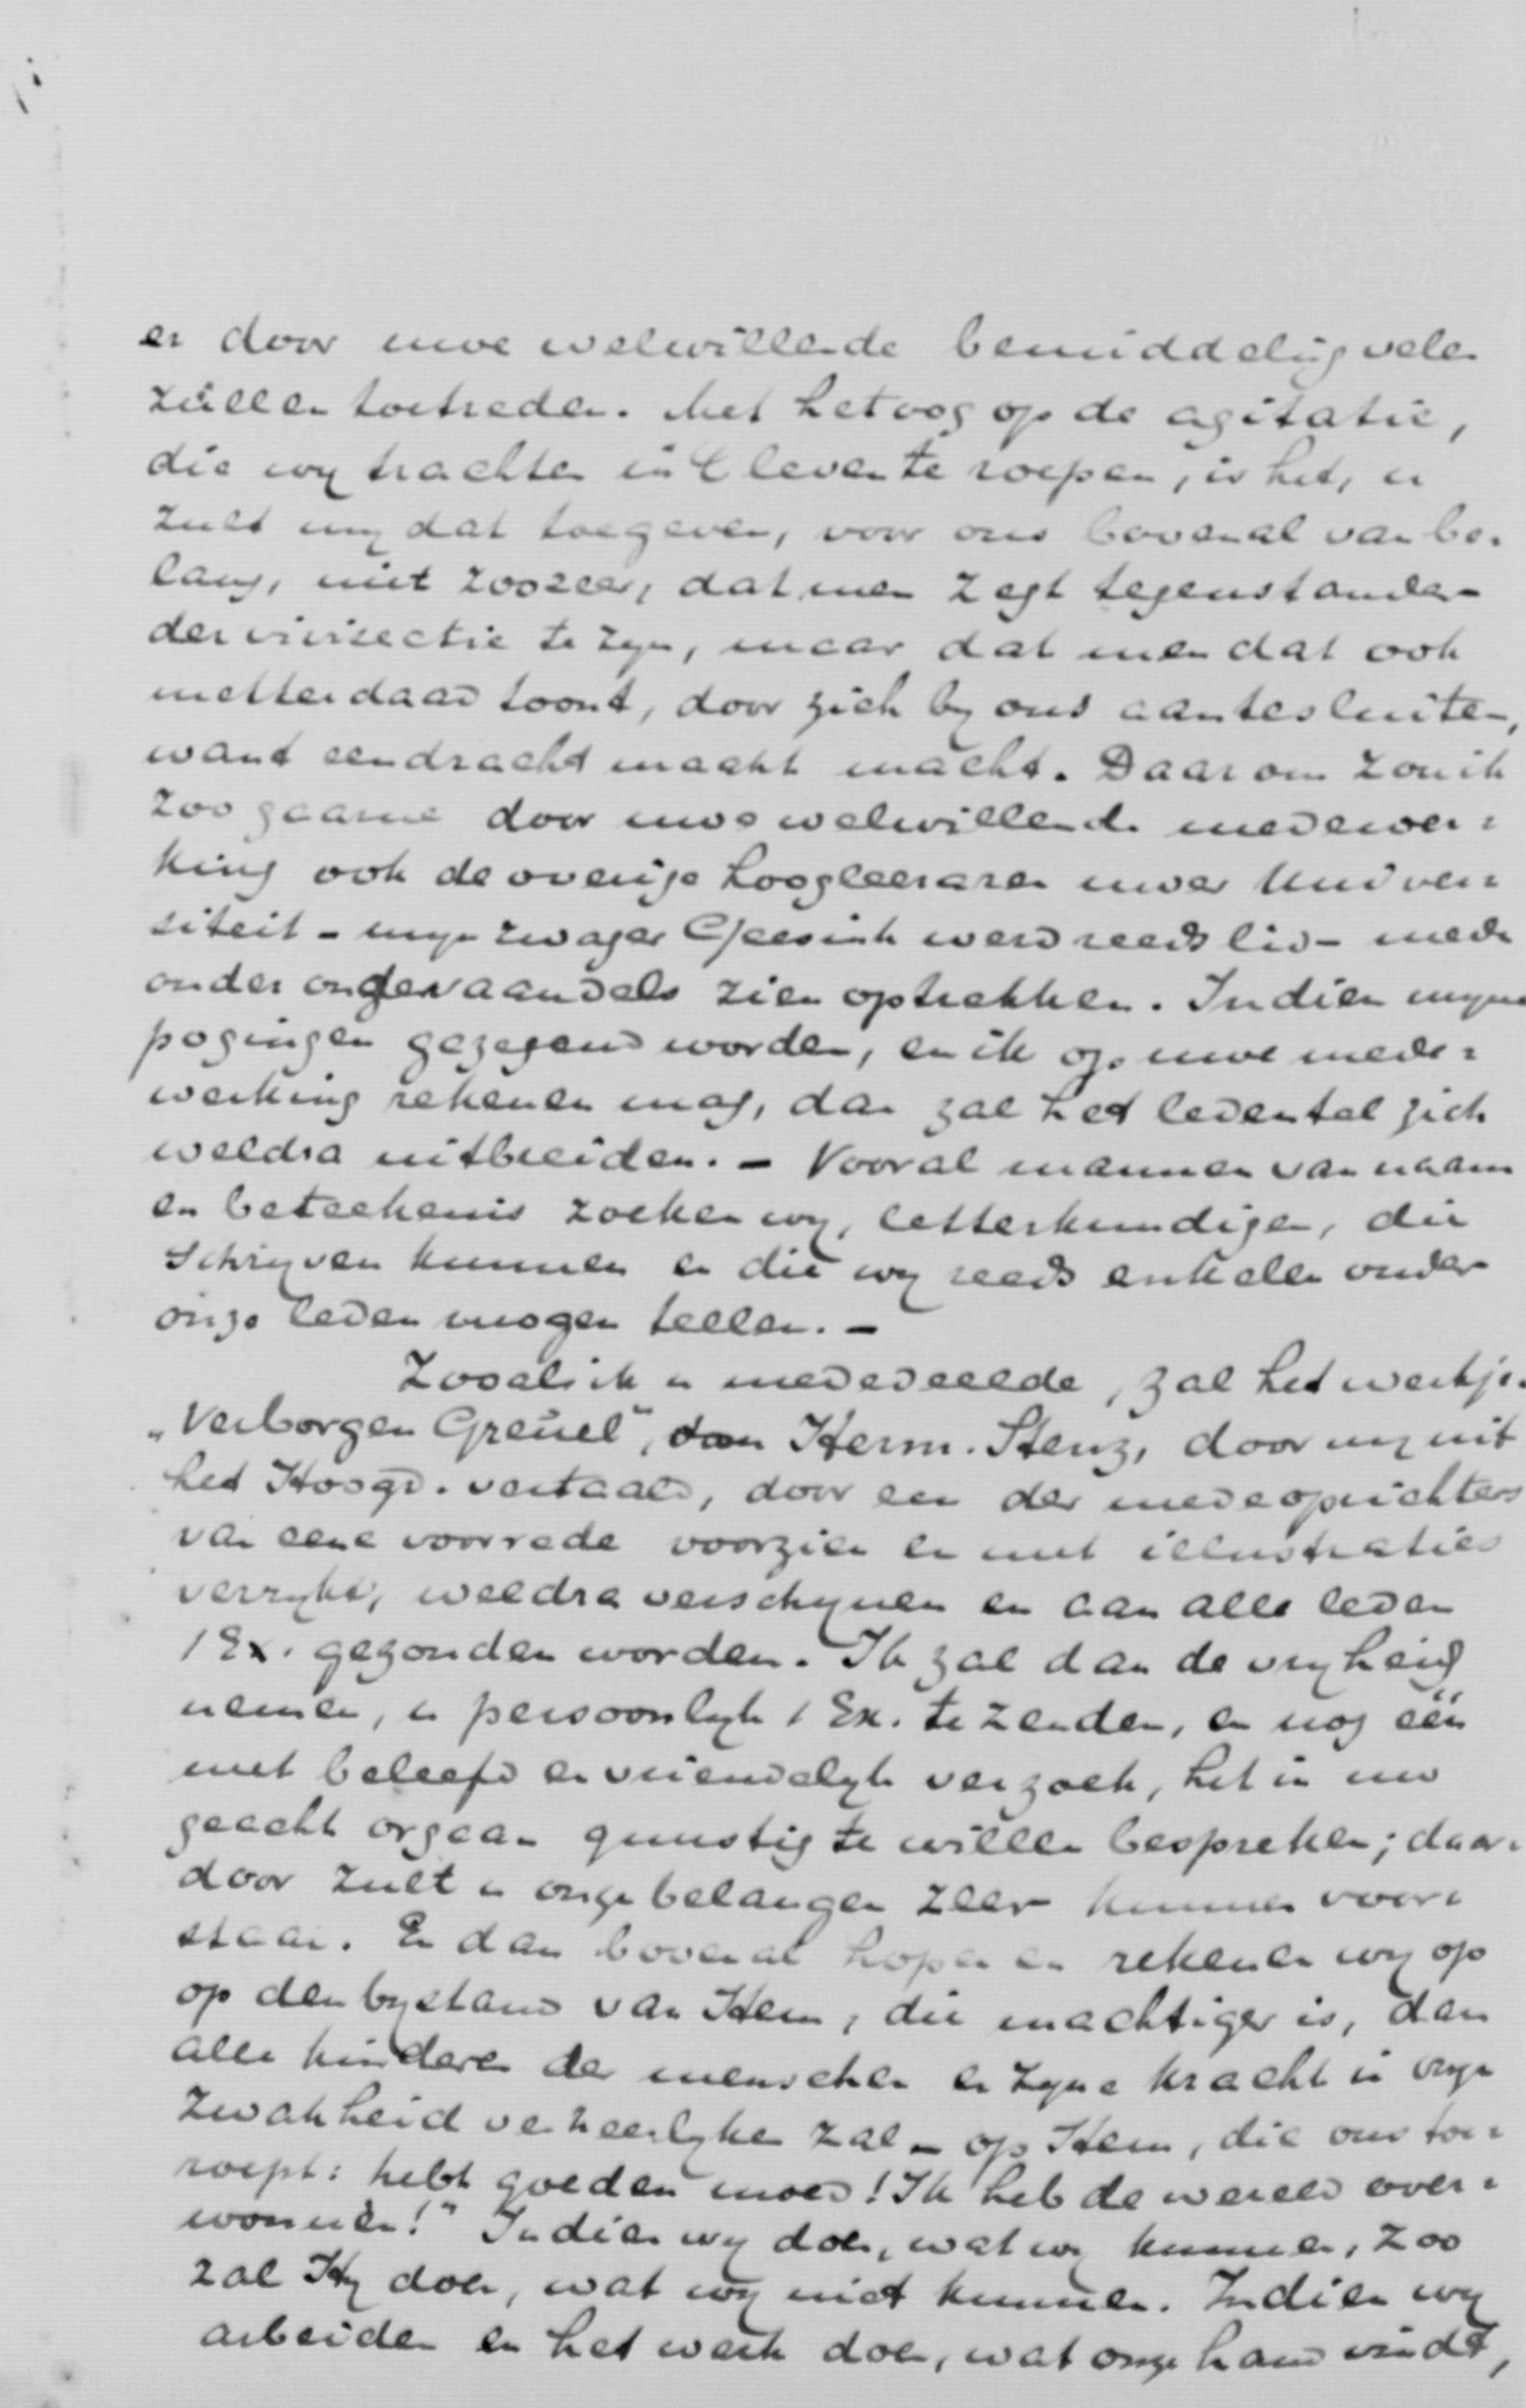 er door uwe welwillende bemiddeling velen
zullen toetreden. Met het oog op de agitatie,
die wy trachten in 't leven te roepen, is het, u
zult my dat toegeven, voor ons bovenal van be-
lang, niet zoozeer, dat men zegt tegenstander
der vivisectie te zyn, maar dat men dat ook
metterdaad toont, door zich by ons aantesluiten,
want eendracht maakt macht. Daarom zou ik
zoo gaarne door uwe welwillende medewer-
king ook de overige hoogleeraren uwer Univer-
siteit - myn zwager Geesink werd reeds lid - mede
onder onze vaandels zien optrekken. Indien myne
pogingen gezegend worden, en ik op uwe mede-
werking rekenen mag, dan zal het ledental zich
weldra uitbreiden. - Vooral mannen van naam
en beteekenis zoeken wy, letterkundigen, die
schryven kunnen en die wy reeds enkelen onder
onze leden mogen tellen. -
Zooals ik u mededeelde, zal het werkje
„Verborgen Greuel", van Herm. Stenz, door my uit
het Hoogd. vertaald, door een der medeoprichters
van eene voorrede voorzien en met illustraties
verrykt, weldra verschynen en aan alle leden
1 Ex. gezonden worden. Ik zal dan de vryheid
nemen, u persoonlyk 1 Ex. te zenden, en nog één
met beleefd en vriendelyk verzoek, het in uw
geacht orgaan gunstig te willen bespreken; daar-
door zult u onze belangen zeer kunnen voor-
staan. En dan bovenal hopen en rekenen wy op
op den bystand van Hem, die machtiger is, dan
alle kinderen der menschen en Zyne kracht in onze
zwakheid verheerlyken zal - op Hem, die ons toe-
roept: hebt goeden moed! Ik heb de wereld over-
wonnen!" Indien wy doen, wat wy kunnen, zoo
zal Hy doen, wat wy niet kunnen. Indien wy
arbeiden en het werk doen, wat onze hand vindt,